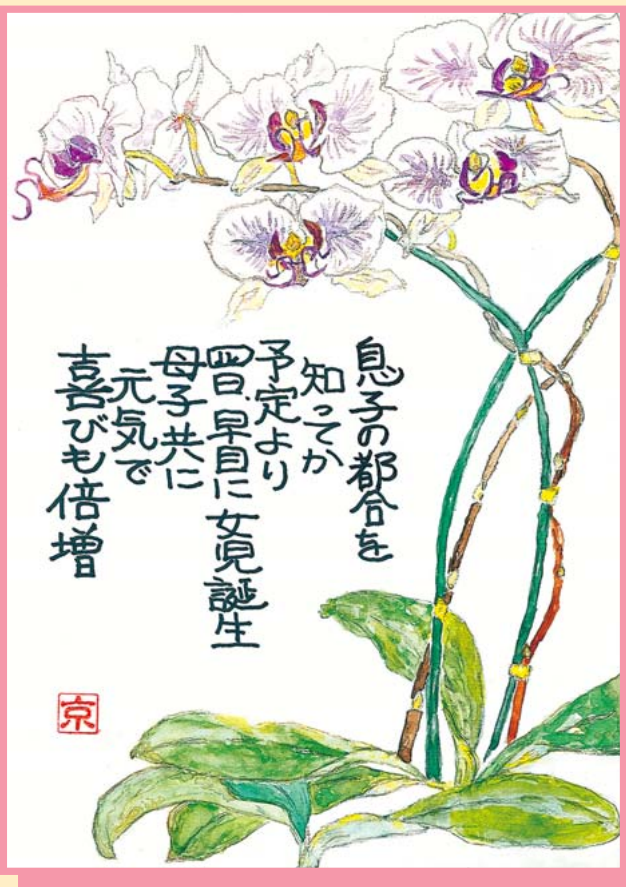 息子の都合を
知ってか
予定より
四日、早目に女児誕生
母子共に
元気で
喜びも倍増
京